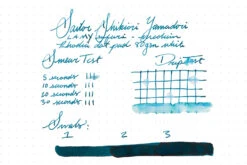 Sailor Shikiori Yamadori
LAMY Safari - medium
Rhodia dot pad 80gsm white
Smear Test
Drip Test
5 seconds
10 seconds
20 seconds
30 seconds
Swabs:
1 2 3